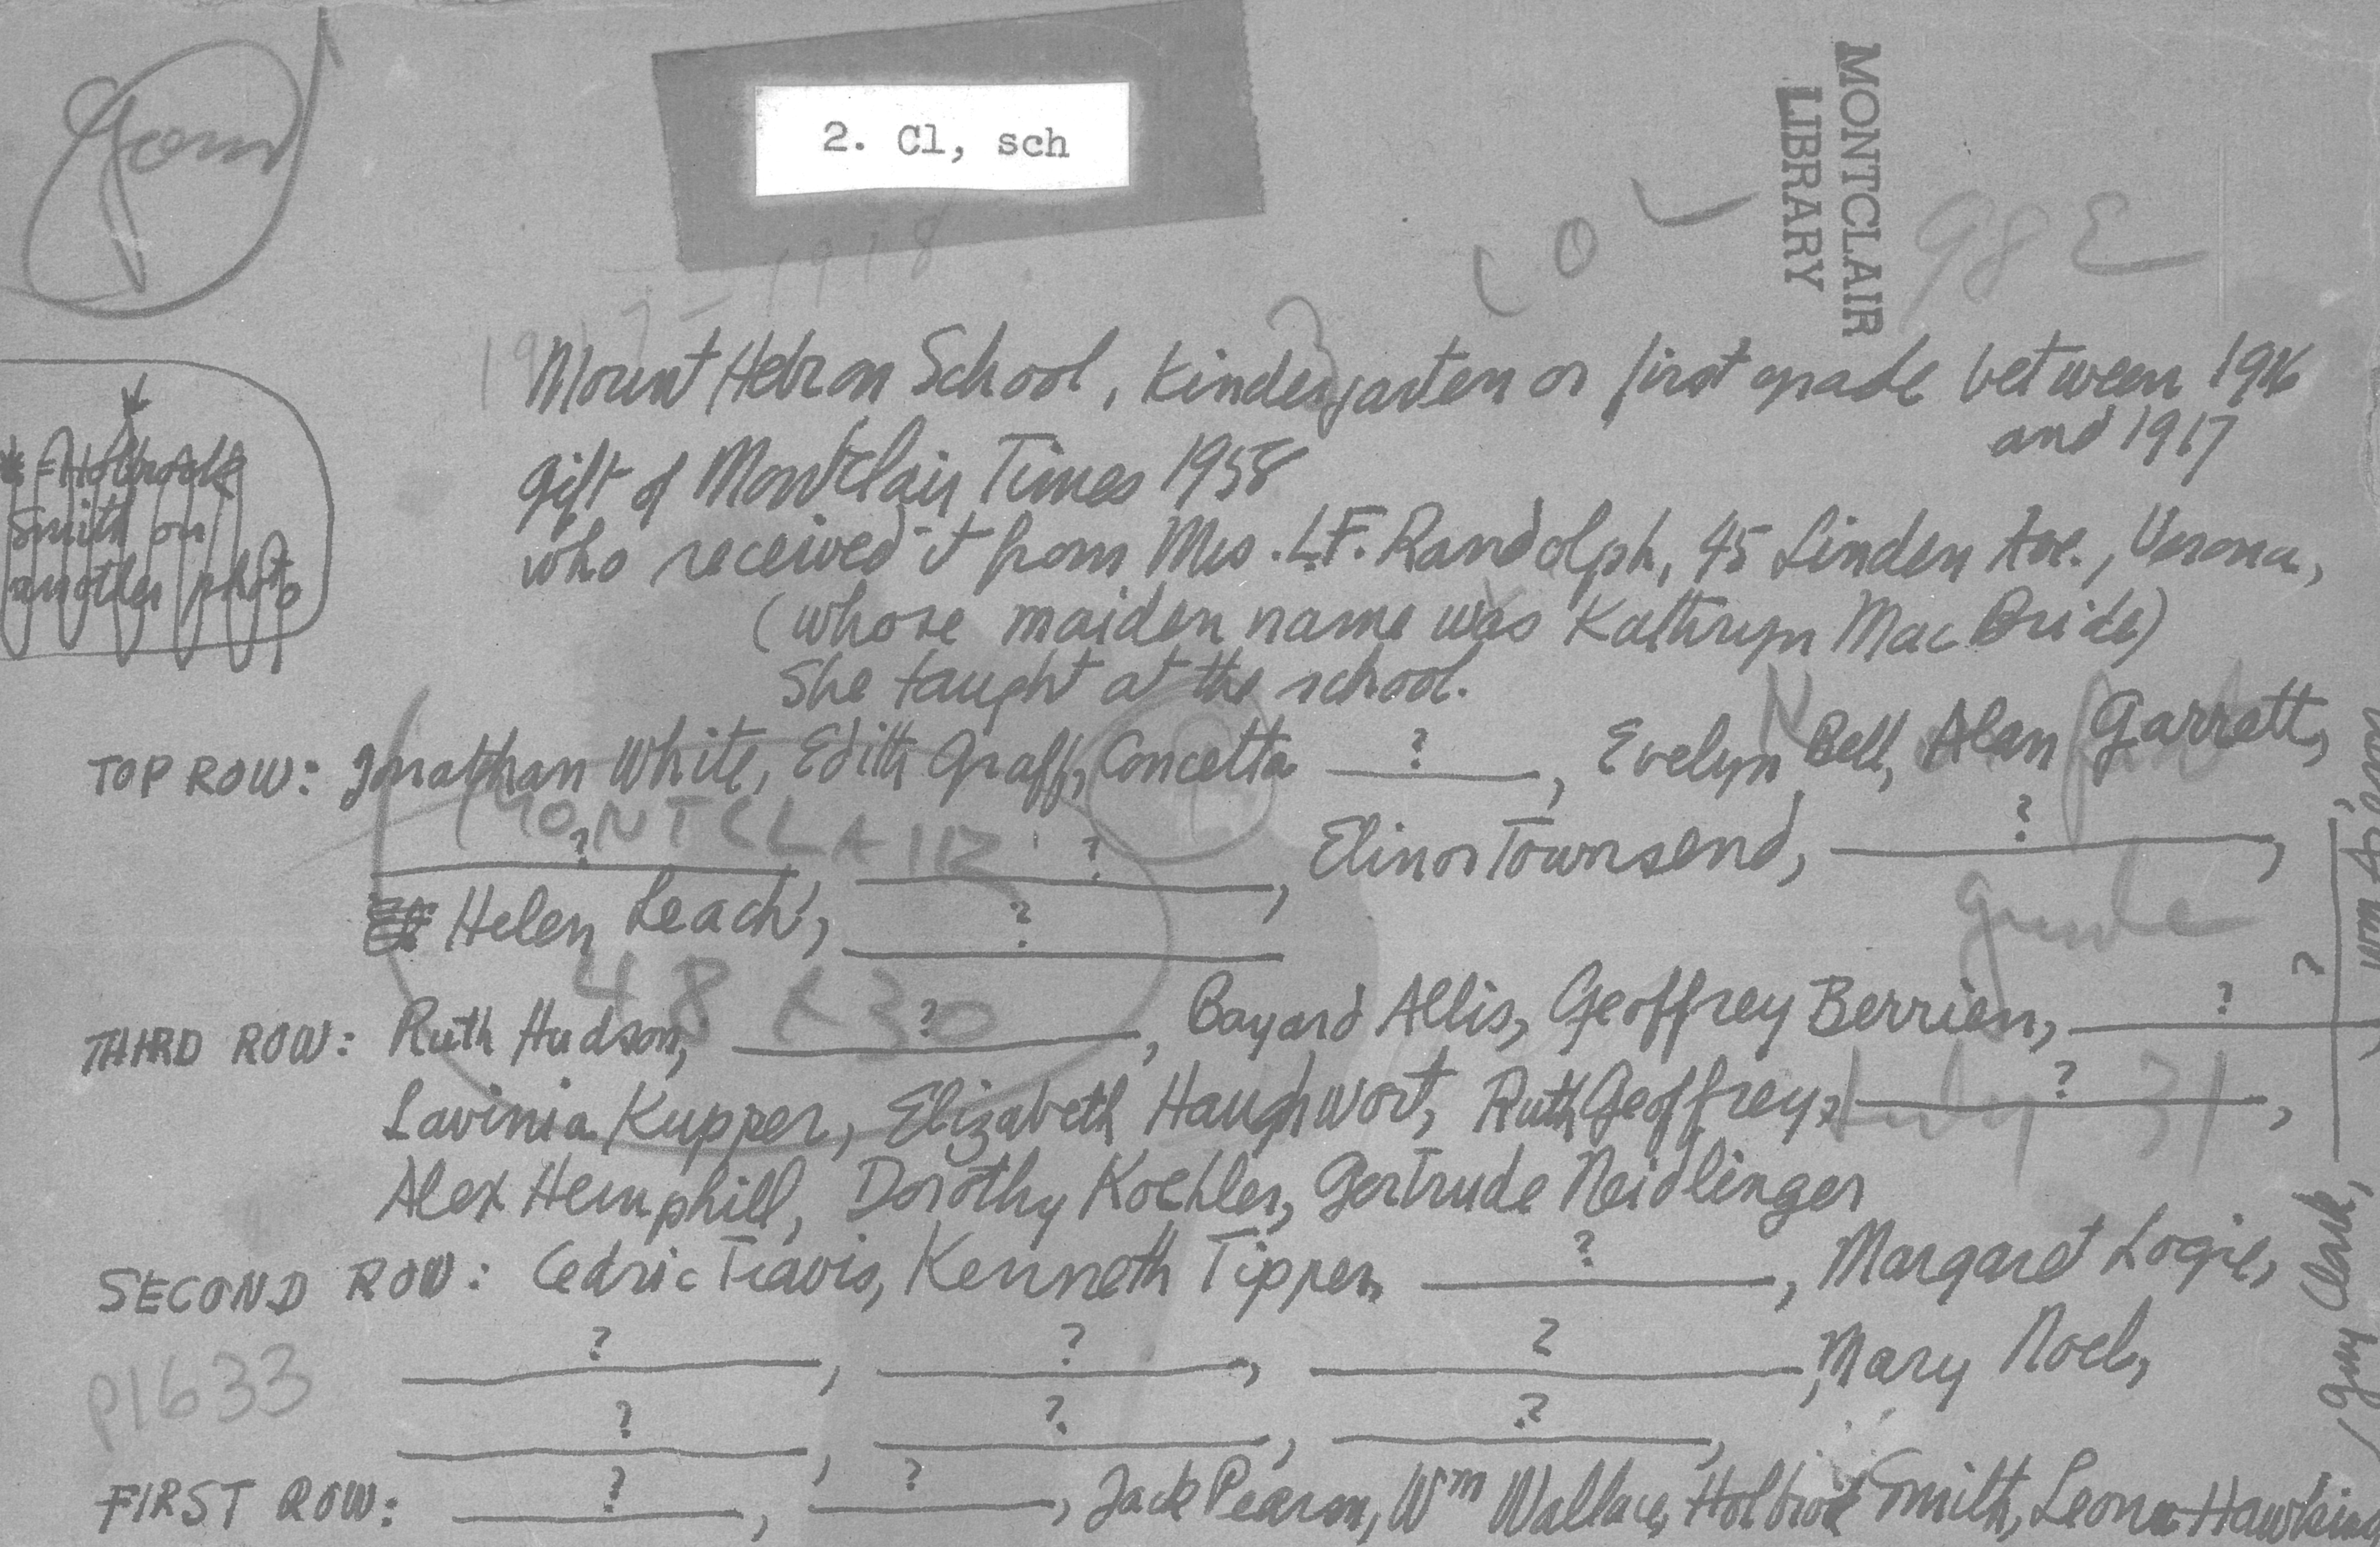 2. Cl, sch
MONTCLAIR
LIBRARY
98 E
1917-1918
Mount Hebron School, Kindergarten or first grade between 1916
and 1917
Gift of Montclair Times 1958
who received it from Mrs. L.F. Randolph, 45 Linden Ave., Verona,
(whose maiden name was Kathryn MacBride)
She taught at the school.
Holbrook
Smith on
another photo
TOP ROW: Jonathan White, Edith Graff, Concetta ?, Evelyn Bell, Alan Garrett,
?, ?, Elinor Townsend, ?,
Helen Leach, ?
MONTCLAIR
48 x 30
grade
THIRD ROW: Ruth Hudson, ?, Bayard Allis, Geoffrey Berrien, ?,
Lavinia Kupper, Elizabeth Haughwort, Ruth Geoffrey, ?,
July 31
Alex Hemphill, Dorothy Koehler, Gertrude Neidlinger
SECOND ROW: Cedric Travis, Kenneth Tipper, ?, Margaret Logie,
?, ?, ?, Mary Noel,
P1633
?, ?, ?,
FIRST ROW: ?, ?, Jack Pearson, Wm Wallace, Holbrook Smith, Leona Hawkins
Guy Clark, ? Wm